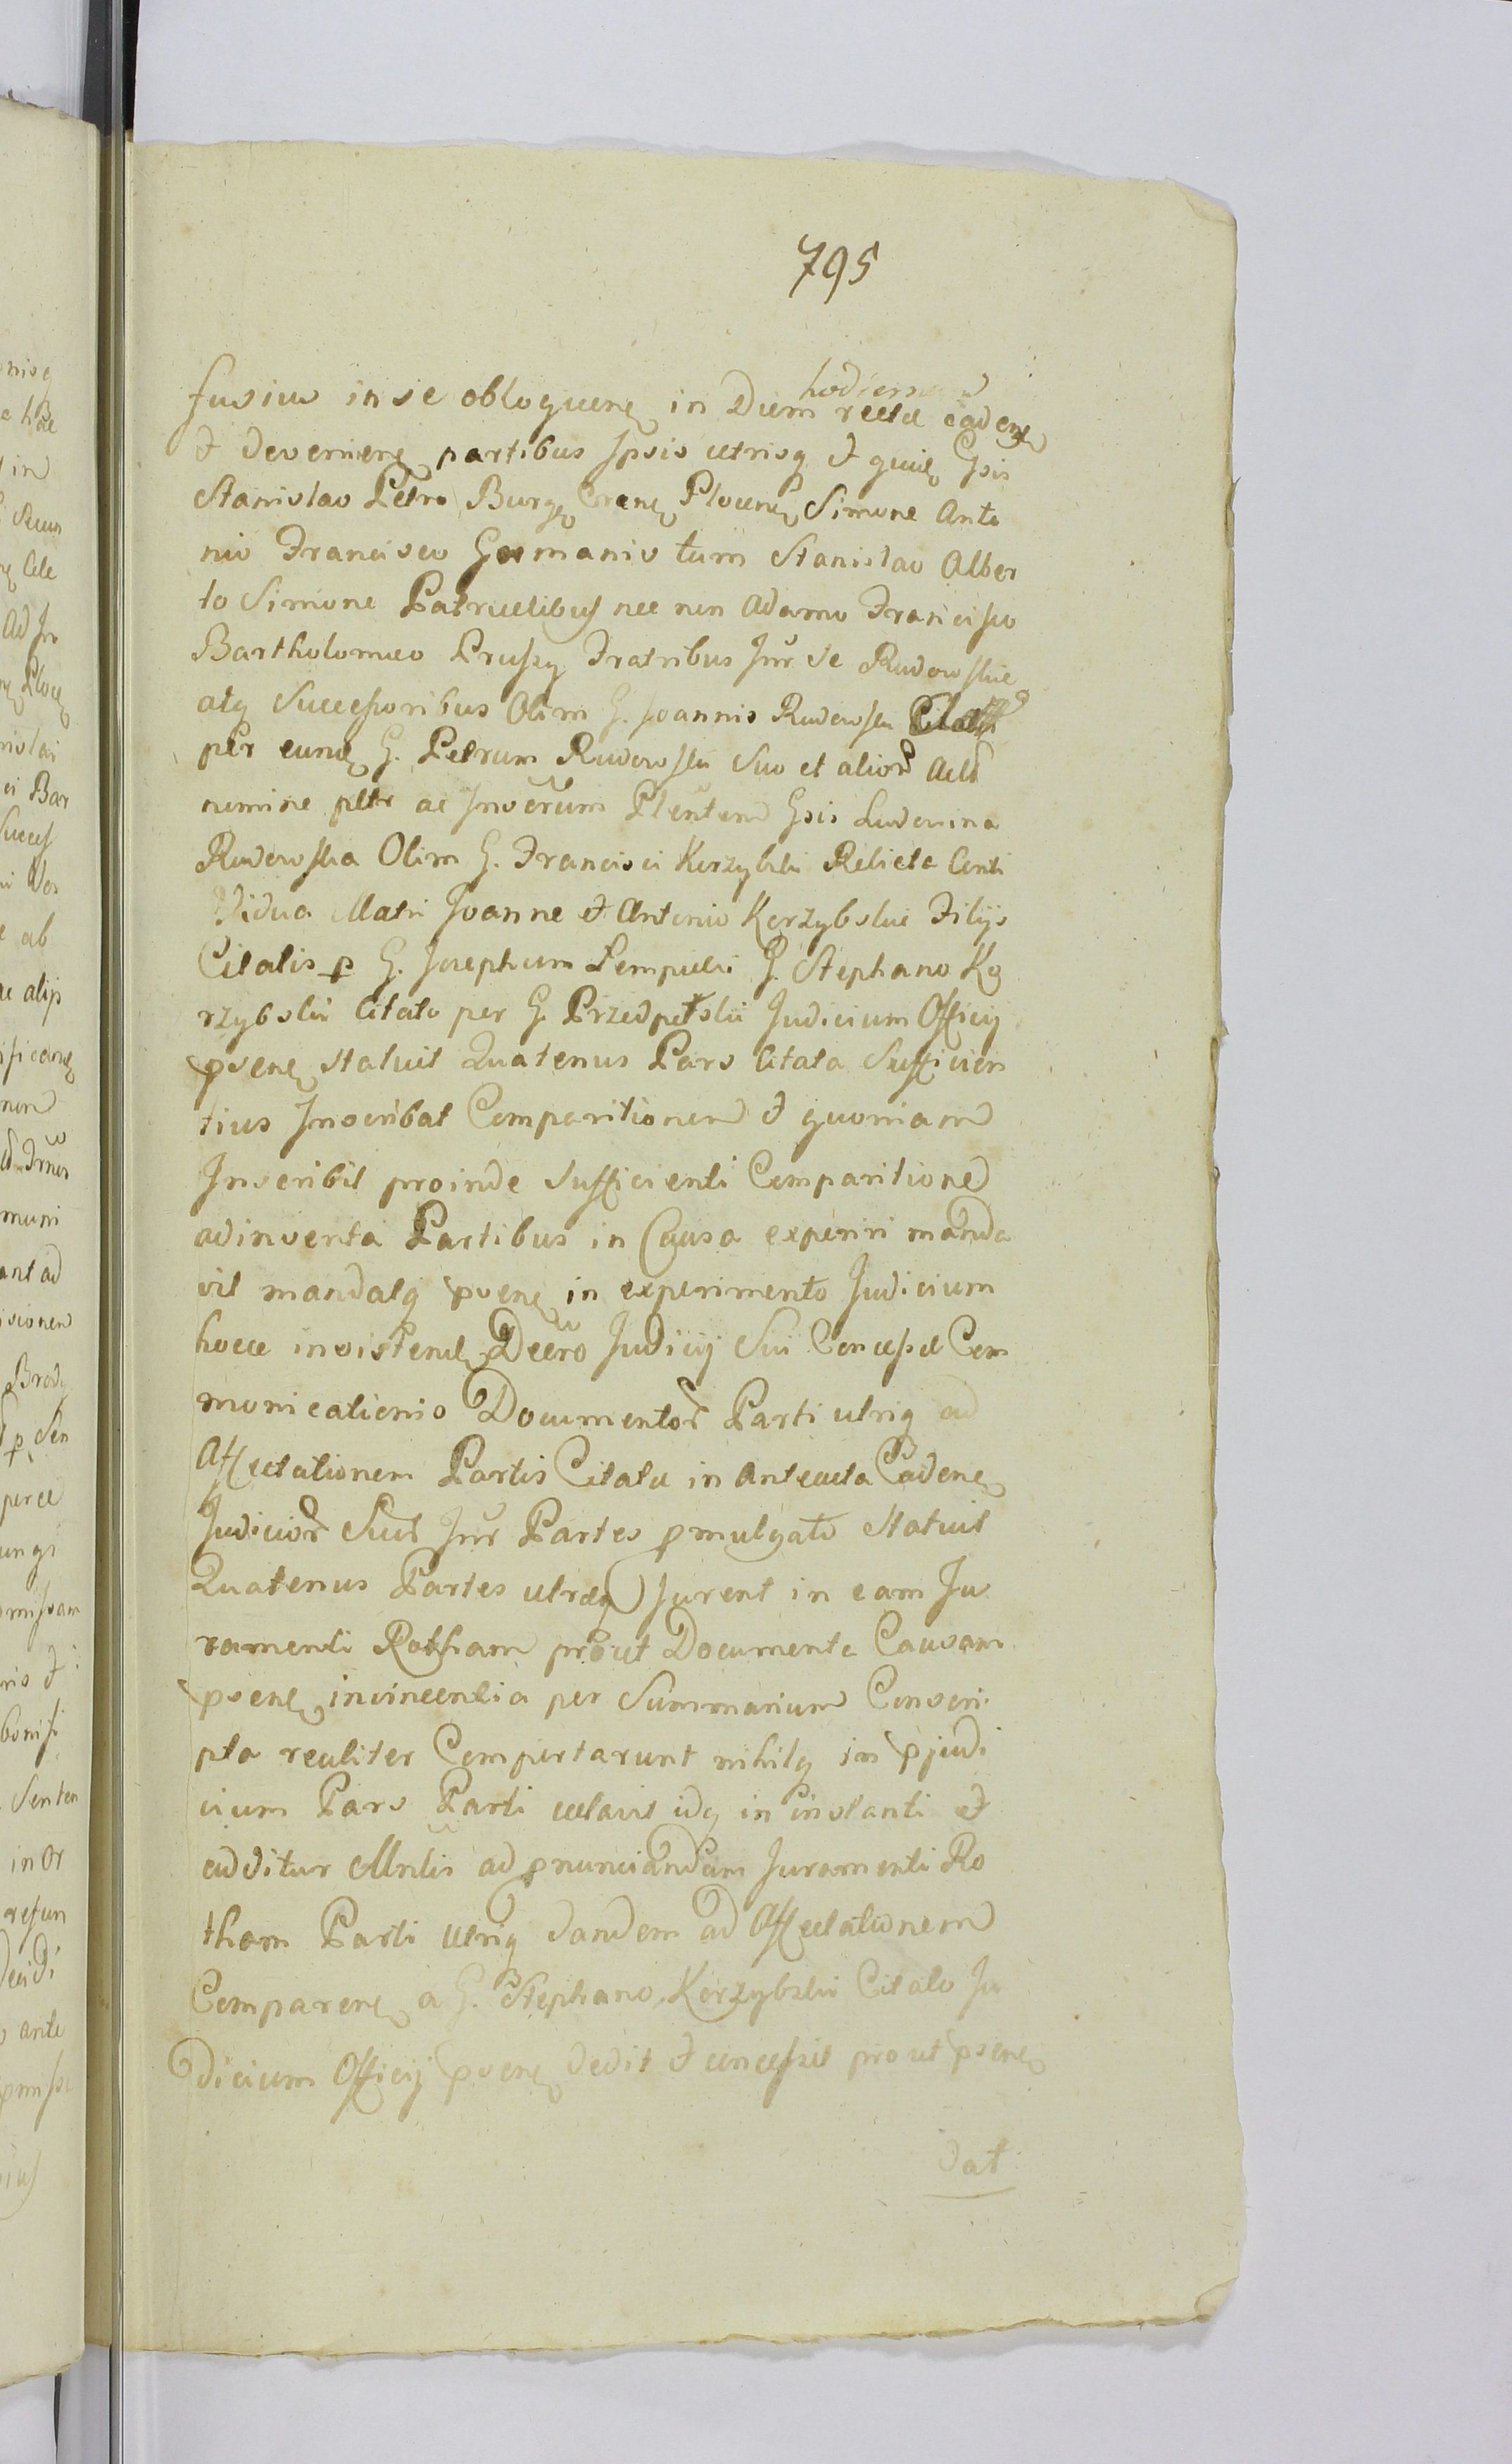 795
hodierna
fusius in se obloquene in Diem recte cadene
et deveniene partibus Ipsis utrisq et quie Gsis
Stanislao Petro Burg Crane Plocene Simone Anto
nio Francisco Germanis tum Stanislao Alber
to Simone Patruelibus nec non Adamo Francisco
Bartholomeo Prussy Fratribus Inr se Rudowskie
atq Successoribus Olim G. Joannis Rudowski
per eund G. Petrum Rudowski Suo et alior Act
nomine plte ac Inserum Plentem Gsis Ludovina
Rudowska Olim G. Francisci Korzybski Relicta Conti
Vidua Matri Joanne et Antonio Korzybskie Filijs
Citatis p G. Josephum Pempicki G. Stephano Ko
rzybski Citato per G. Przedpełski Judicium Officij
psene statuit Quatenus Pars Citata Sufficien
tius Inscribat Comparitionem et quoniam
Inscribit proinde sufficienti Comparitione
adinventa Partibus in Causa experiri manda
vit mandatq psene in experimento Judicium
hocce insistend Decro Judicij Sui Concesse Com
monicationis Documentor Parti utriq ad
Affectationem Partis Citatae in Anteacta Cadene
Judicior Suor Inr Partes pmulgato Statuit
Quatenus Partes utraeq Jurent in eam Ju
ramenti Rotham prout Documenta Causam
psene invincentia per Summarium Conscri
pta realiter Comportarunt nihilq in pjudi
cium Pars Parti celavit idq in instanti et
additur Mnlis ad pnunciandam Juramenti Ro
tham Parti Utriq dandem ad Affectationem
Comparene a G. Stephano Korzybski Citato Ju
dicium Officij psene dedit et concessit prout psene
dat